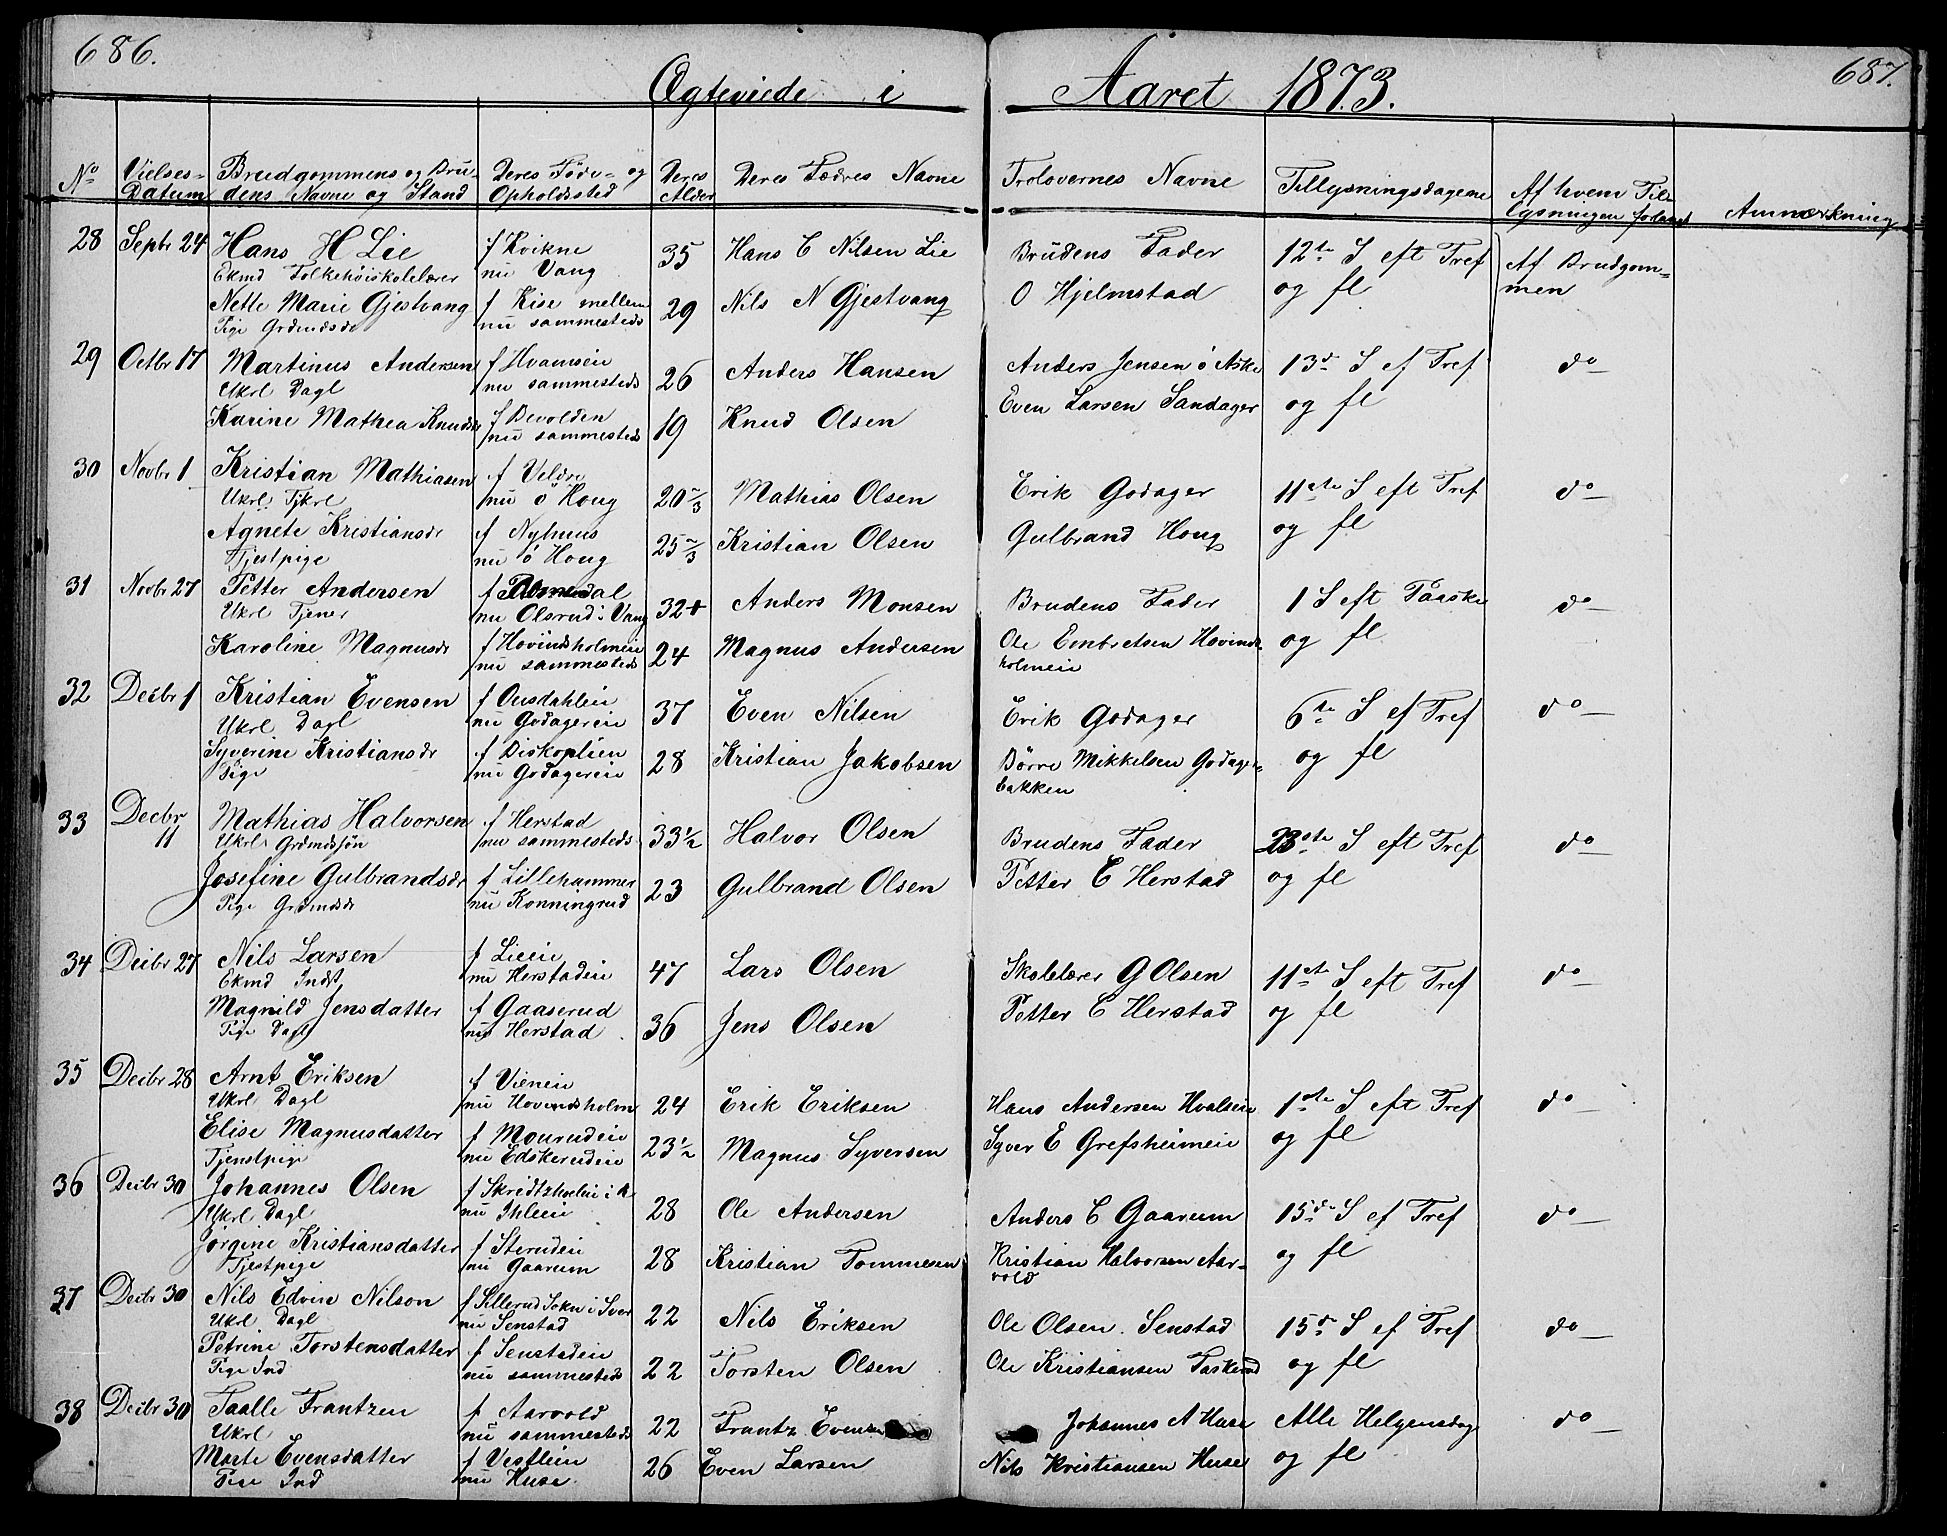 686.
Ægteviede i Aaret 1873.
687.
No
Vielses-
Datum
Brudgommens og Bru-
dens Navne og Stand
Deres Føde- og
Opholdssted
Deres
Alder
Deres Fædres Navne
Trolovernes Navne
Tillysningsdagene
Af hvem Til-
lysningen forlangt
Anmærkning
28 Septbr 24 Hans H Lie f Kvikne 35 Hans C Nilsen Lie Brudens Fader 12te S eft Tref Af Brudgom-
Ekmd Folkehøiskolelærer nu Vang og fl men
Nette Marie Gjestvang f Kise mellem 29 Nils N Gjestvang O Hjelmstad
Pige Grdmdsdr nu sammesteds
29 Octbr 17 Martinus Andersen f Hvamseie 26 Anders Hansen Anders Jensen ö Aske 13d S ef Tref do
Ukrl Dagl nu sammesteds
Karine Mathea Knudsdr f Bevolden 19 Knud Olsen Even Larsen Sandager og fl
nu sammesteds
30 Novbr 1 Kristian Mathiasen f Veldre 20 2/3 Mathias Olsen Erik Godager 11te S eft Tref do
Ukrl Tjkrl nu ö Houg
Agnete Kristiansdr f Nyhuus 25 2/3 Kristian Olsen Gulbrand Houg og fl
Tjestpige nu ö Houg
31 Novbr 27 Petter Andersen f Romedal 32+ Anders Monsen Brudens Fader 1 S eft Paaske do
Ukrl Tjener nu Olsrud i Vang
Karoline Magnusdr f Hovindsholmeie 24 Magnus Andersen Ole Embretsen Hovinds-
nu sammesteds holmeie og fl
32 Decbr 1 Kristian Evensen f Ousdahleie 37 Even Nilsen Erik Godager 6te S ef Tref do
Ukrl Dagl nu Godagereie
Syverine Kristiansdr f Biskoplien 28 Kristian Jakobsen Børre Mikkelsen Godager- og fl
Pige nu Godagereie bakken
33 Decbr 11 Mathias Halvorsen f Herstad 33 1/2 Halvor Olsen Brudens Fader 23de S eft Tref do
Ukrl Grdmdssøn nu sammesteds
Josefine Gulbrandsdr f Lillehammer 23 Gulbrand Olsen Petter E Herstad og fl
Pige Grdmdsdr nu Konningrud
34 Decbr 27 Nils Larsen f Lieeie 47 Lars Olsen Skolelærer G Olsen 11te S eft Tref do
Ekmd Indst nu Herstadeie
Magnild Jensdatter f Gaaserud 36 Jens Olsen Petter E Herstad og fl
Pige Dagl nu Herstad
35 Decbr 28 Arnt Eriksen f Vieneie 24 Erik Eriksen Hans Andersen Hvalseie 1ste S eft Tref do
Ukrl Dagl nu Hovendsholm
Elise Magnusdatter f Mourudeie 23 1/2 Magnus Syversen Syver E Grefsheimeie og fl
Tjenstpige nu Edskerudeie
36 Decbr 30 Johannes Olsen 28 Ole Andersen Anders E Gaarum 15de S ef Tref do
Ukrl Dagl nu Ihleeie
Jørgine Kristiansdatter f Sterudeie 28 Kristian Tommesen Kristian Halvorsen Aar- og fl
Tjestpige nu Gaarum vold
37 Decbr 30 Nils Edvin Nilson f Sillerud Sokn i Sver 22 Nils Eriksen Ole Olsen Senstad 15d S ef Tref do
Ukrl Dagl nu Senstad
Petrine Torstensdatter f Senstadeie 22 Torsten Olsen Ole Kristiansen Faskerud og fl
Pige Ind nu sammesteds
38 Decbr 30 Taalle Frantzen f Aarvold 22 Frantz Evensen Johannes A Huse Alle Helgensdag do
Ukrl nu sammesteds
Marte Evensdatter f Vestleie 26 Even Larsen Nils Kristiansen Huse og fl
Pige Ind nu Huse